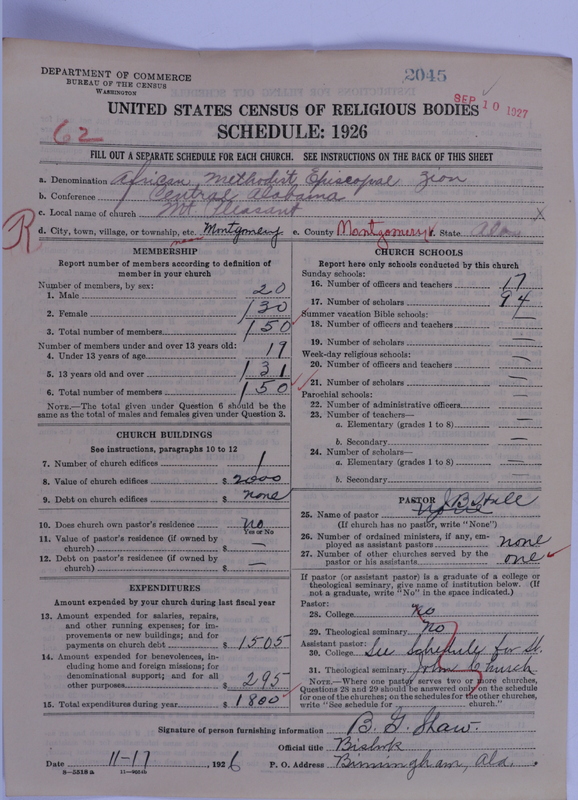 DEPARTMENT OF COMMERCE
BUREAU OF THE CENSUS
WASHINGTON
2045
SEP 10 1927
UNITED STATES CENSUS OF RELIGIOUS BODIES
62
SCHEDULE: 1926
FILL OUT A SEPARATE SCHEDULE FOR EACH CHURCH. SEE INSTRUCTIONS ON THE BACK OF THIS SHEET
a. Denomination African Methodist Episcopal Zion
b. Conference Central Alabama
c. Local name of church Mt. Pleasant X
R
d. City, town, village, or township, etc. near Montgomery e. County Montgomery f. State Ala
MEMBERSHIP
Report number of members according to definition of
member in your church
Number of members, by sex:
1. Male 20
2. Female 130
3. Total number of members 150
Number of members under and over 13 years old:
4. Under 13 years of age 19
5. 13 years old and over 131
6. Total number of members 150
NOTE.—The total given under Question 6 should be
the same as the total of males and females given under Question 3.
CHURCH BUILDINGS
See instructions, paragraphs 10 to 12
7. Number of church edifices 1
8. Value of church edifices $ 2000
9. Debt on church edifices $ none
10. Does church own pastor's residence No
Yes or No
11. Value of pastor's residence (if owned by
church) $ —
12. Debt on pastor's residence (if owned by
church) $ —
EXPENDITURES
Amount expended by your church during last fiscal year
13. Amount expended for salaries, repairs,
and other running expenses; for im-
provements or new buildings; and for
payments on church debt $ 1505
14. Amount expended for benevolences, in-
cluding home and foreign missions; for
denominational support; and for all
other purposes $ 295
15. Total expenditures during year $ 1800
CHURCH SCHOOLS
Report here only schools conducted by this church
Sunday schools:
16. Number of officers and teachers 17
17. Number of scholars 94
Summer vacation Bible schools:
18. Number of officers and teachers —
19. Number of scholars —
Week-day religious schools:
20. Number of officers and teachers —
21. Number of scholars —
Parochial schools:
22. Number of administrative officers —
23. Number of teachers—
a. Elementary (grades 1 to 8) —
b. Secondary —
24. Number of scholars—
a. Elementary (grades 1 to 8) —
b. Secondary
PASTOR
25. Name of pastor J B
(If church has no pastor, write "None")
26. Number of ordained ministers, if any, em-
ployed as assistant pastors none
27. Number of other churches served by the
pastor or his assistants one
If pastor (or assistant pastor) is a graduate of a college or
theological seminary, give name of institution below. (If
not a graduate, write "No" in the space indicated.)
Pastor:
28. College No
29. Theological seminary No
Assistant pastor:
30. College See Schedule for St.
31. Theological seminary John Church
NOTE.—Where one pastor serves two or more churches,
Questions 28 and 29 should be answered only on the schedule
for one of the churches; on the schedules for the other churches,
write "See schedule for church."
Signature of person furnishing information B. G. Shaw.
Official title Bishop
Date 11-17, 1926 P. O. Address Birmingham, Ala.
8-5518 a